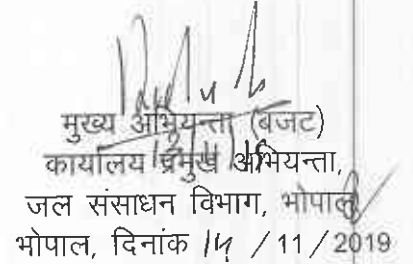 मुख्य अभियन्ता (बजट)
कार्यालय प्रमुख अभियन्ता,
जल संसाधन विभाग, भोपाल
भोपाल, दिनांक 14 / 11 / 2019